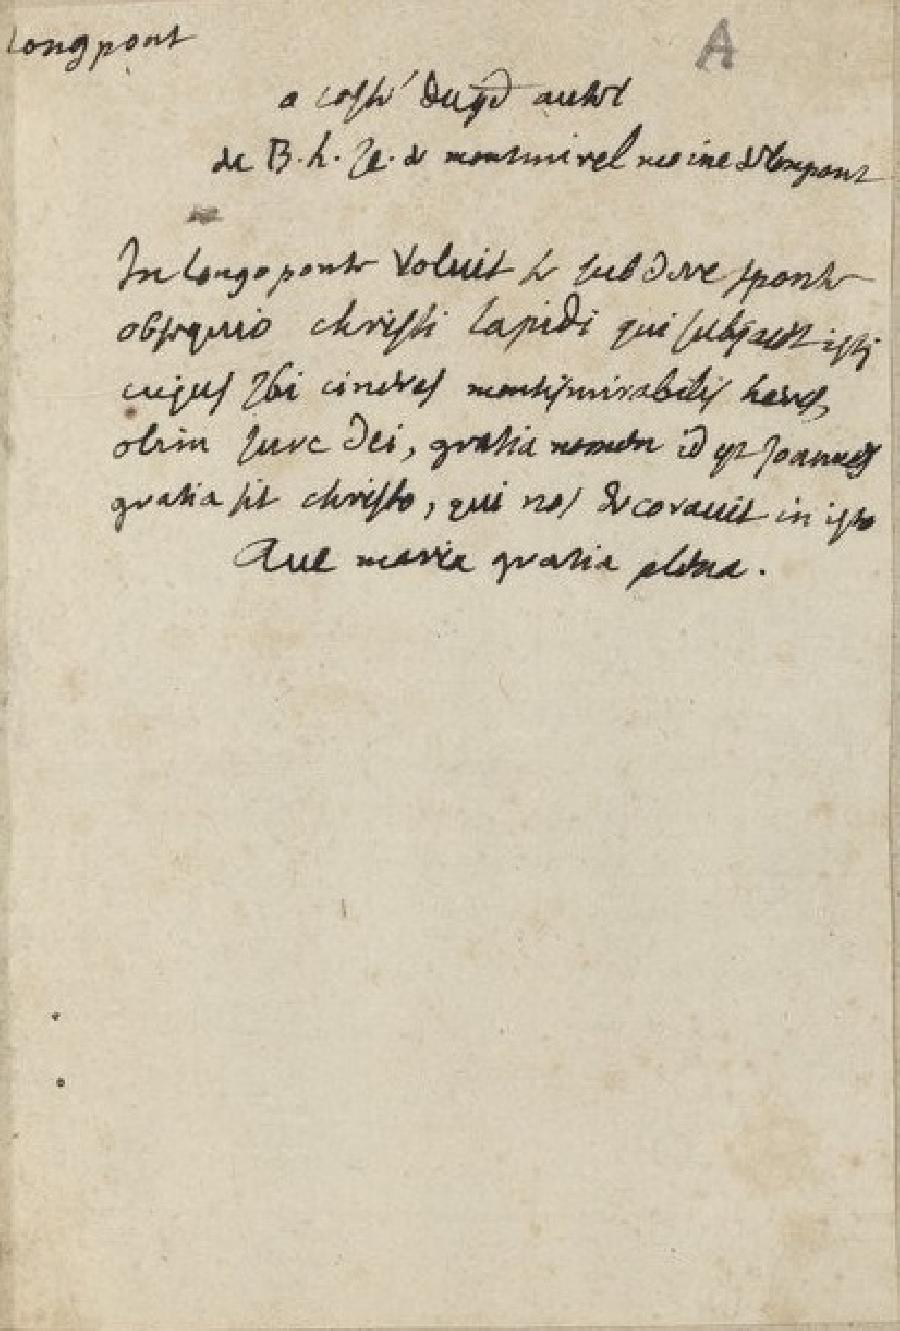 longpont
A
a costé du gd autel
de B. h. Je. de montmirel moine de longpont
In longo ponte voluit se subdere sponte
obsequio christi lapidi qui subjacet isti
cujus ibi cineres montismirabilis heres,
olim jure Dei, gratia nomen id est Joannes
gratia sit christo, qui nos decoravit in isto
Ave maria gratia plena.